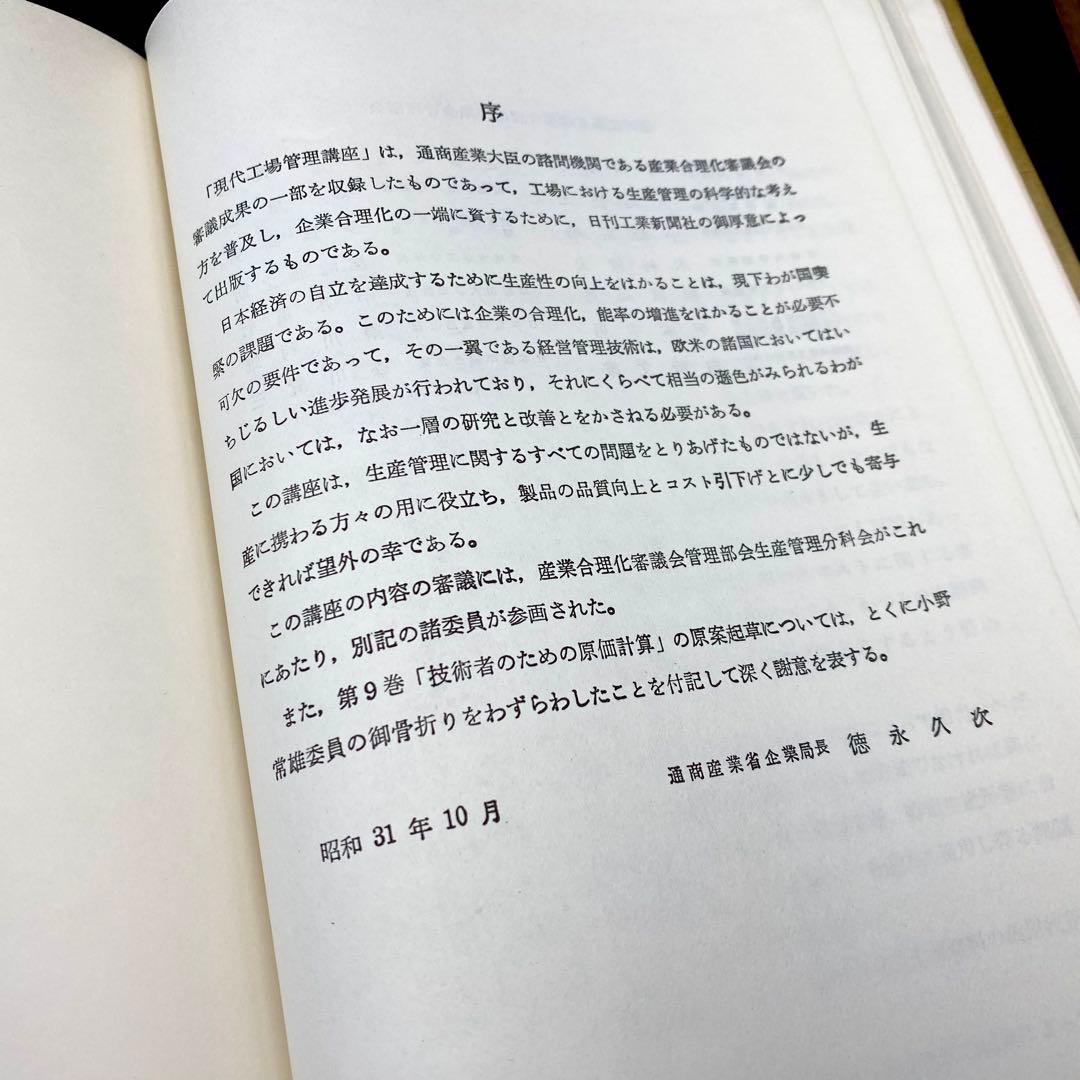 序
「現代工場管理講座」は，通商産業大臣の諮問機関である産業合理化審議会の
審議成果の一部を収録したものであって，工場における生産管理の科学的な考え
方を普及し，企業合理化の一端に資するために，日刊工業新聞社の御厚意によっ
て出版するものである。
日本経済の自立を達成するために生産性の向上をはかることは，現下わが国喫
緊の課題である。このためには企業の合理化，能率の増進をはかることが必要不
可欠の要件であって，その一翼である経営管理技術は，欧米の諸国においてはい
ちじるしい進歩発展が行われており，それにくらべて相当の遜色がみられるわが
国においては，なお一層の研究と改善とをかさねる必要がある。
この講座は，生産管理に関するすべての問題をとりあげたものではないが，生
産に携わる方々の用に役立ち，製品の品質向上とコスト引下げとに少しでも寄与
できれば望外の幸である。
この講座の内容の審議には，産業合理化審議会管理部会生産管理分科会がこれ
にあたり，別記の諸委員が参画された。
また，第9巻「技術者のための原価計算」の原案起草については，とくに小野
常雄委員の御骨折りをわずらわしたことを付記して深く謝意を表する。
通商産業省企業局長 徳永久次
昭和 31 年 10 月